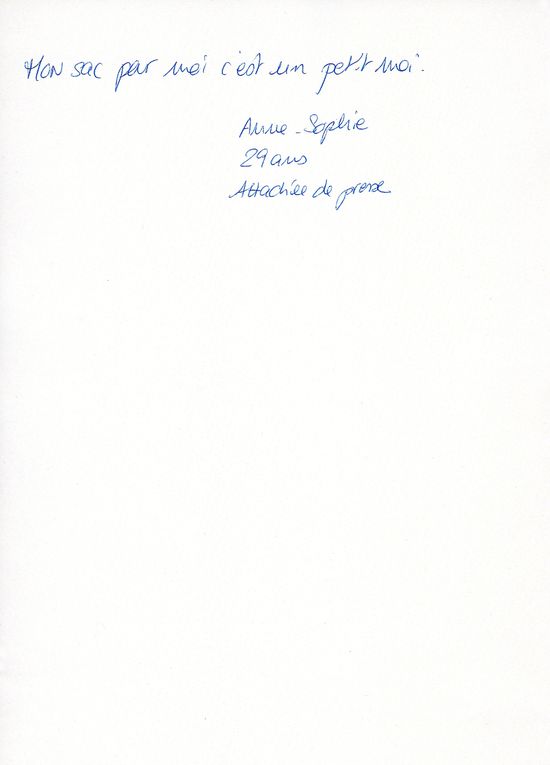 Mon sac par moi c'est un petit moi.
Anne-Sophie
29 ans
Attachée de presse